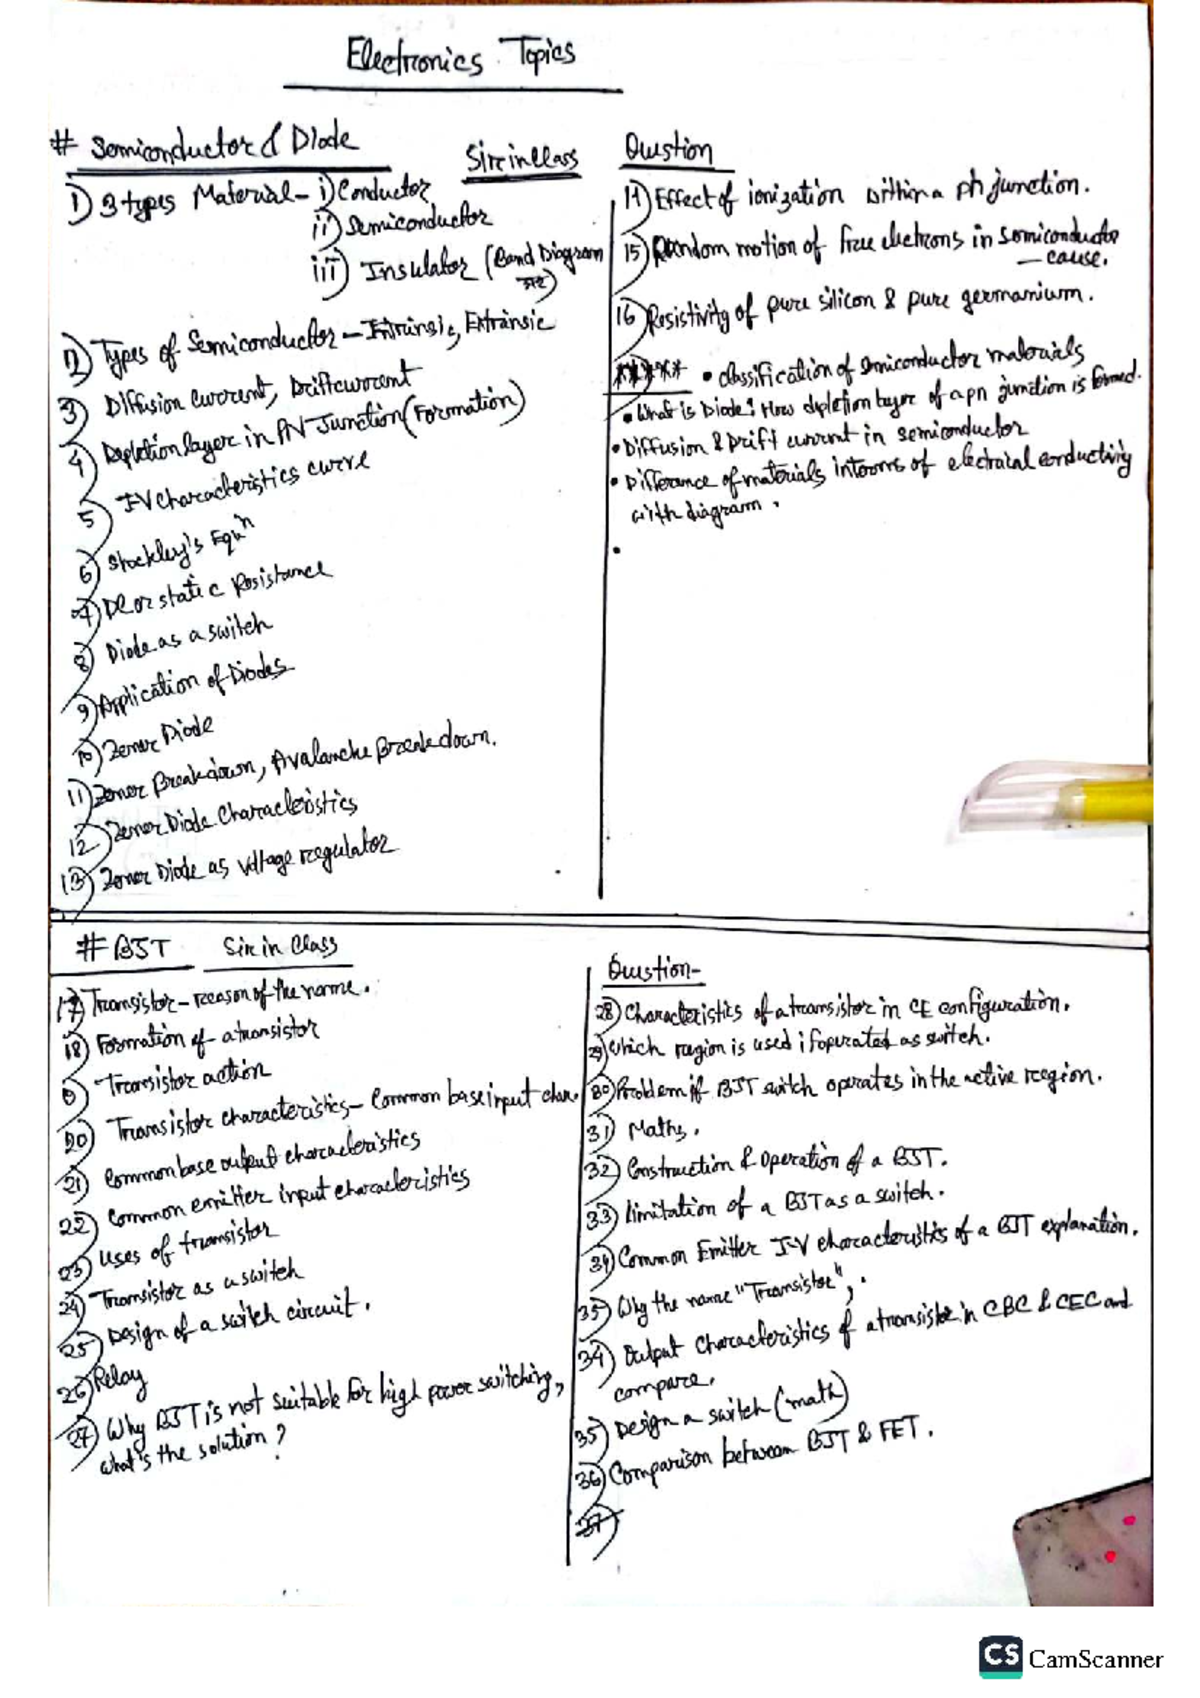 Electronics Topics
# Semiconductor & Diode
Sir in Class
1) 3 types Material - i) Conductor
ii) Semiconductor
iii) Insulator (Band Diagram
2) Types of Semiconductor - Intrinsic, Extrinsic
3) Diffusion current, Drift current
4) Depletion layer in PN Junction (Formation)
5) IV characteristics curve
6) Shockley's Equn
7) DC or static Resistance
8) Diode as a switch
9) Application of Diodes
10) Zener Diode
11) Zener Breakdown, Avalanche Breakdown.
12) Zener Diode Characteristics
13) Zener Diode as voltage regulator
Question
14) Effect of ionization within a pn junction.
15) Random motion of free electrons in semiconductor
- cause.
16) Resistivity of pure silicon & pure germanium.
***** • classification of semiconductor materials
• What is Diode? How depletion layer of a pn junction is formed.
• Diffusion & Drift current in semiconductor
• Difference of materials interms of electrical conductivity
with diagram.
•
# BJT Sir in Class
17) Transistor - reason of the name.
18) Formation of a transistor
19) Transistor action
20) Transistor characteristics - Common base input char.
21) Common base output characteristics
22) Common emitter input characteristics
23) Uses of transistor
24) Transistor as a switch
25) Design of a switch circuit.
26) Relay
27) Why BJT is not suitable for high power switching,
what's the solution?
Question-
28) Characteristics of a transistor in CE configuration.
29) which region is used if operated as switch.
30) Problem if BJT switch operates in the active region.
31) Maths.
32) Construction & Operation of a BJT.
33) limitation of a BJT as a switch.
34) Common Emitter I-V characteristics of a BJT explanation.
35) Why the name "Transistor",.
34) Output characteristics of a transistor in CBC & CEC and
compare.
35) Design a switch (math)
36) Comparison between BJT & FET.
37)
CS CamScanner